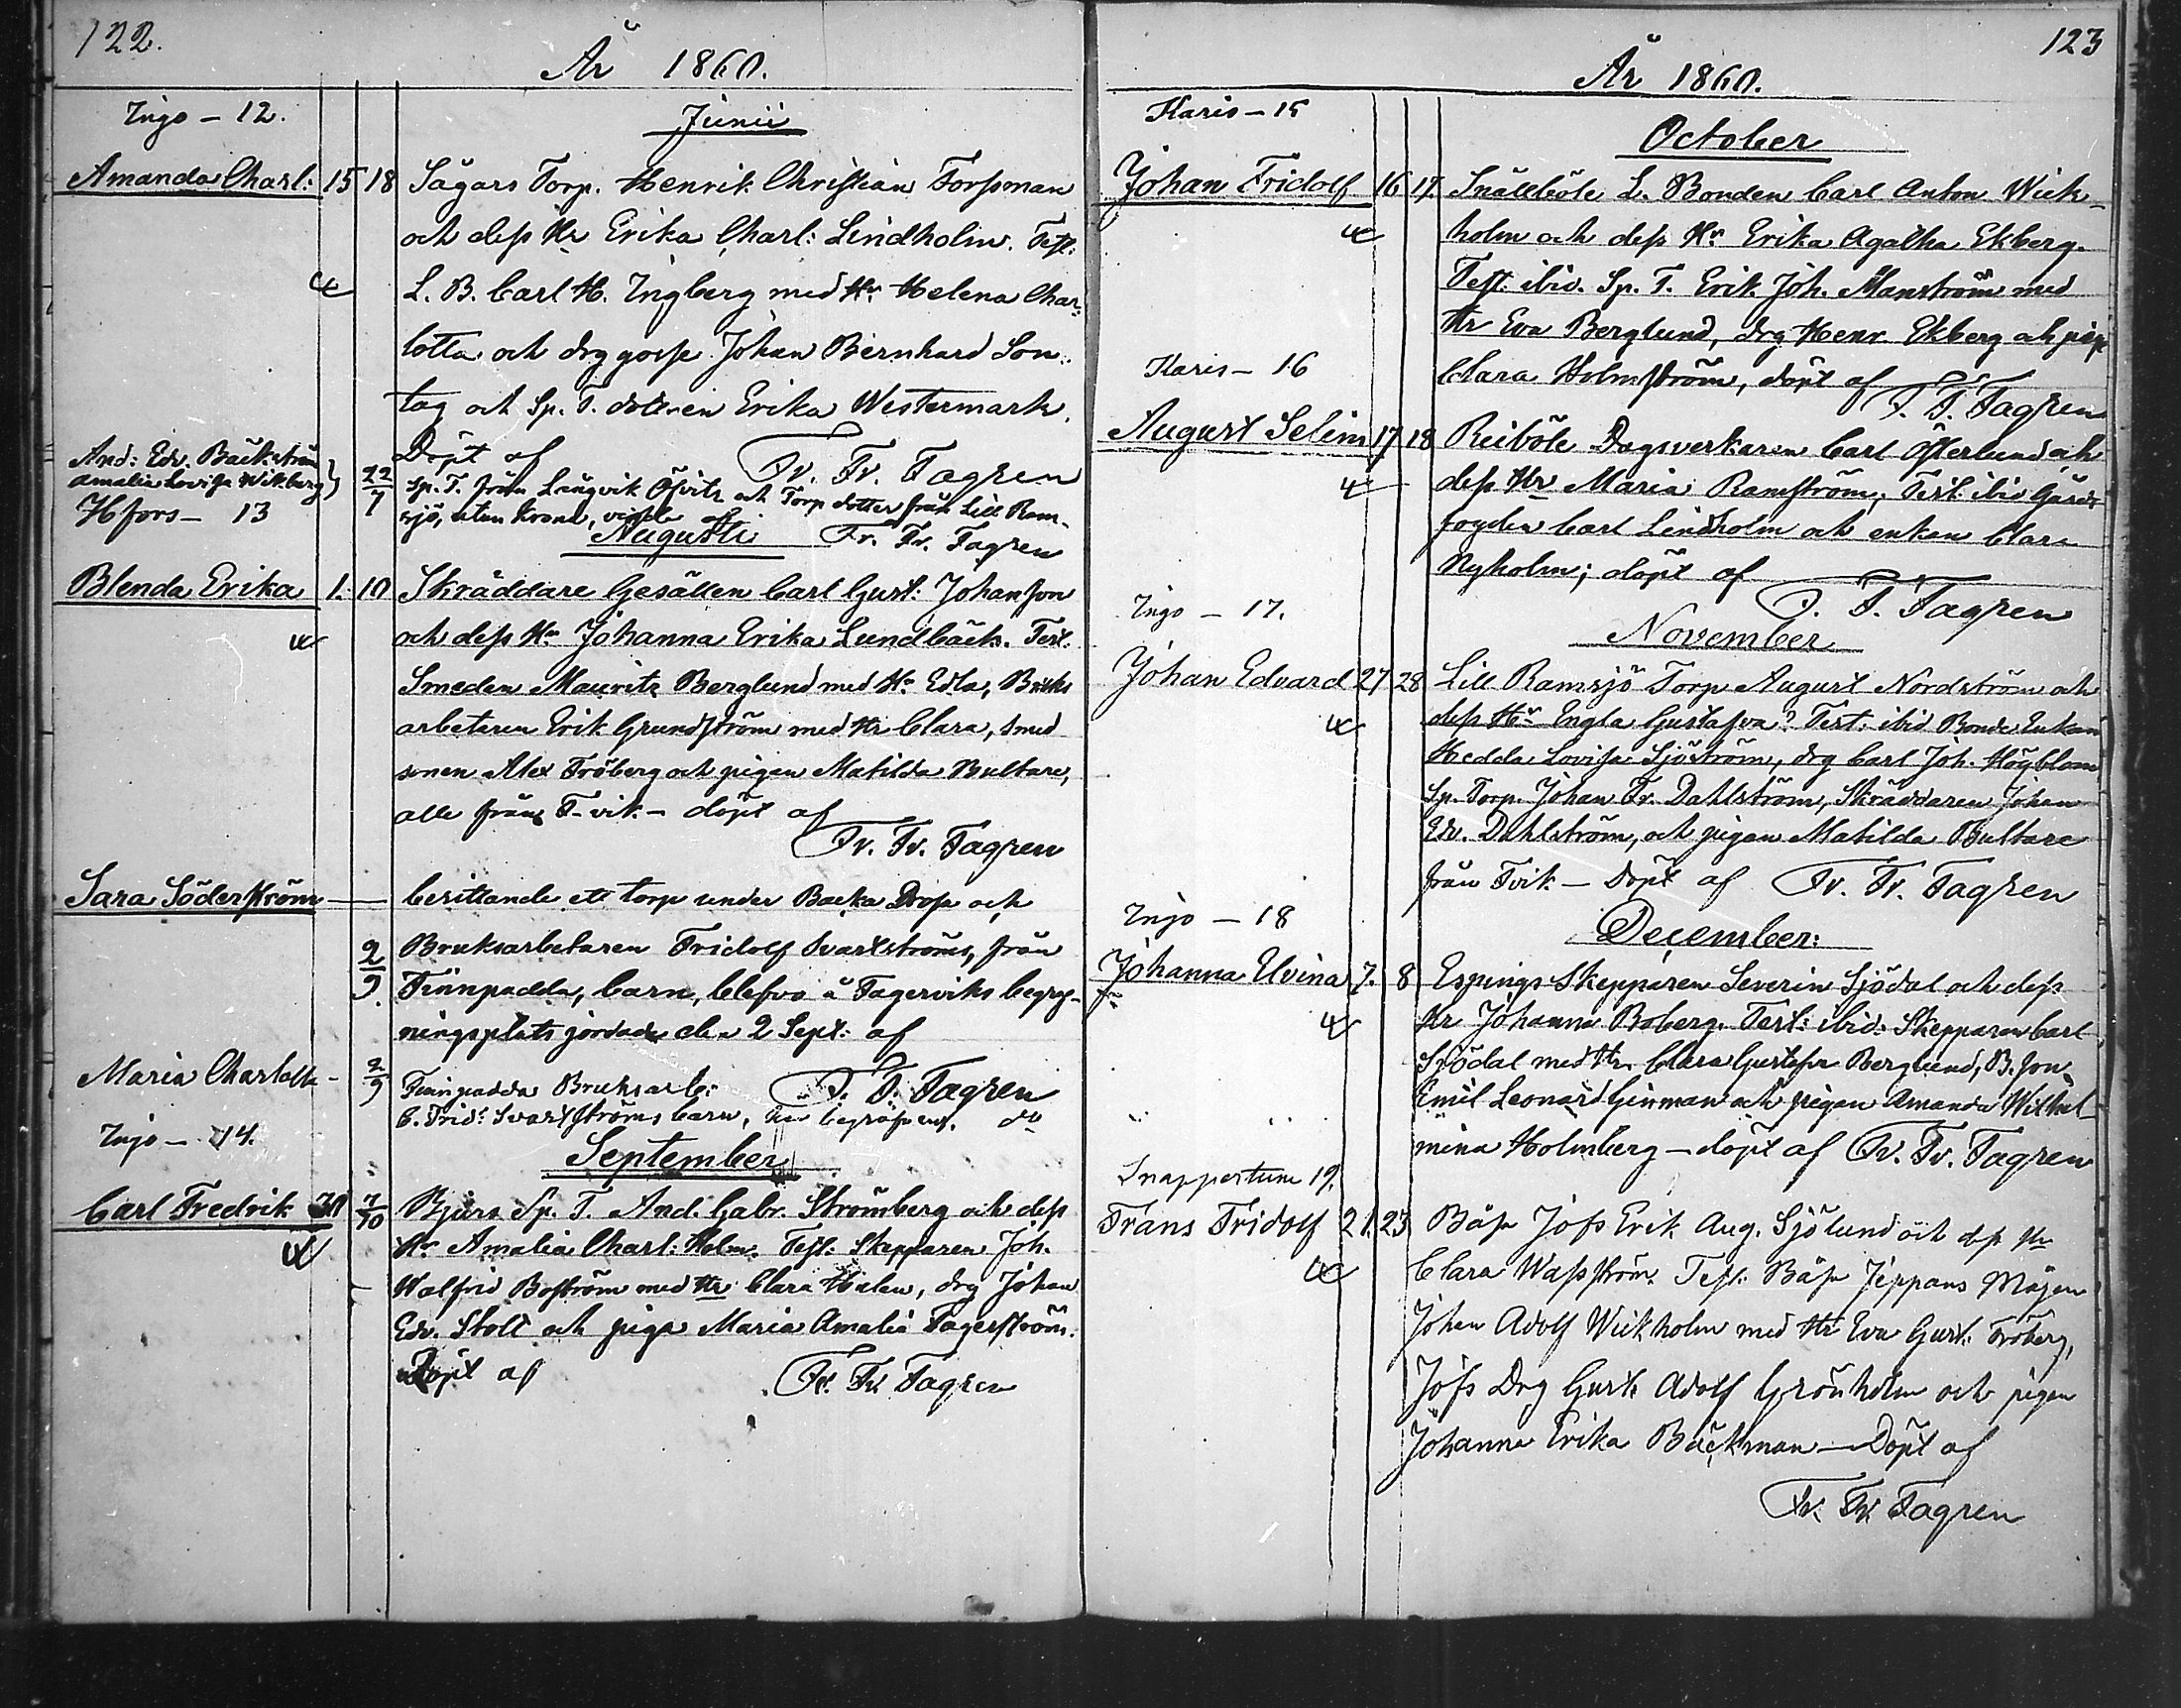 122.
År 1860.
Ingo - 12.
Junii
Amanda Charl: 15 18 Sågars Torp. Henrik Christian Forssman
och dess Hr Erika Charl: Lindholm. Test:
L. B. Carl H. Ingberg med Hr Helena Char-
lotta och drg gosse Johan Bernhard Son-
tag och Sp. T. dottren Erika Westermark.
Döpt af Fr. Fr. Fagren
And: Edv. Bäckström
Amalia Lovisa Wikberg } 22/7 Sp. T. från Långvik Öfvitz och Torp dotter från Lill Ram-
Hfors - 13
sjö, utan krona, vigde af Fr. Fr. Fagren
Augusti
Blenda Erika 1. 10 Skräddare Gesällen Carl Gust: Johansson
och dess Hr Johanna Erika Lundbäck. Test.
Smeden Mauritz Berglund med Hr Edla, Bruks
arbetaren Erik Grundström med Hr Clara, smed
sonen Alex Fröberg och pigan Matilda Bultare,
alle från F-vik - döpt af
Fr. Fr. Fagren
Sara Söderström — besittande ett torp under Backa och
2/9. Bruksarbetaren Fridolf Svartströms, från
Finnpadda, barn, blefvo å Fagerviks begraf-
ningsplats jordade den 2 Sept: af
F. F. Fagren
Maria Charlotta - 2/9 Finnpadda Bruksarb:
C. Frid: Svartströms barn, do
Ingo - 14.
September
Carl Fredrik 30 7/10 Bjurs Sp. T. And. Gabr. Strömberg och dess
Hr Amalia Charl: Holm. Test: Skepparen Joh.
Walfrid Boström med Hr Clara Halen, drg Johan
Edv. Stolt och piga Maria Amalia Fagerström.
Döpt af Fr. Fr. Fagren
123
År 1860.
Karis - 15
October
Johan Fridolf 16 17. Snällböle L. Bonden Carl Anton Wick-
holm och dess Hr Erika Agatha Ekberg.
Test. ibid. Sp. T. Erik Joh. Manström med
Hr Eva Berglund, drg Henr. Ekberg och pig
Clara Holmström, döpt af F. F. Fagren
Karis - 16
August Selim 17 18 Reiböle Dagsverkaren Carl Österlund och
dess Hr Maria Ramström; Test: ibid Gårds-
fogden Carl Lindholm och enkan Clara
Nyholm; döpt af F. F. Fagren
Ingo - 17.
November
Johan Edvard 27 28 Lill Ramsjö Torp August Nordström och
dess Hr Engla Gustafva? Test: ibid Bonde Enkan
Hedda Lovisa Sjöström, drg Carl Joh. Högblom
Sp. Torp. Johan Fr. Dahlström, Skräddaren Johan
Edv. Dahlström, och pigan Matilda Bultare
från Fvik - Döpt af Fr. Fr. Fagren
Ingo - 18
December:
Johanna Elvina 7. 8 Espings Skepparen Severin Sjödal och dess
Hr Johanna Boberg. Test: ibid: Skepparen Carl
Sjödal med Hr. Clara Gustafva Berglund, B. son
Emil Leonard Ginman och pigan Amanda Wilhel-
mina Holmberg - döpt af Fr. Fr. Fagren
Snappertuna 19.
Frans Fridolf 21. 23 Båsa Jofs Erik Aug. Sjölund och dess Hr
Clara Wasström. Test: Båsa Jeppans Mågen
Johan Adolf Wickholm med Hr Eva Gust: Fröberg,
Jofs Drg Gust. Adolf Grönholm och pigan
Johanna Erika Bäckman - Döpt af
Fr. Fr. Fagren